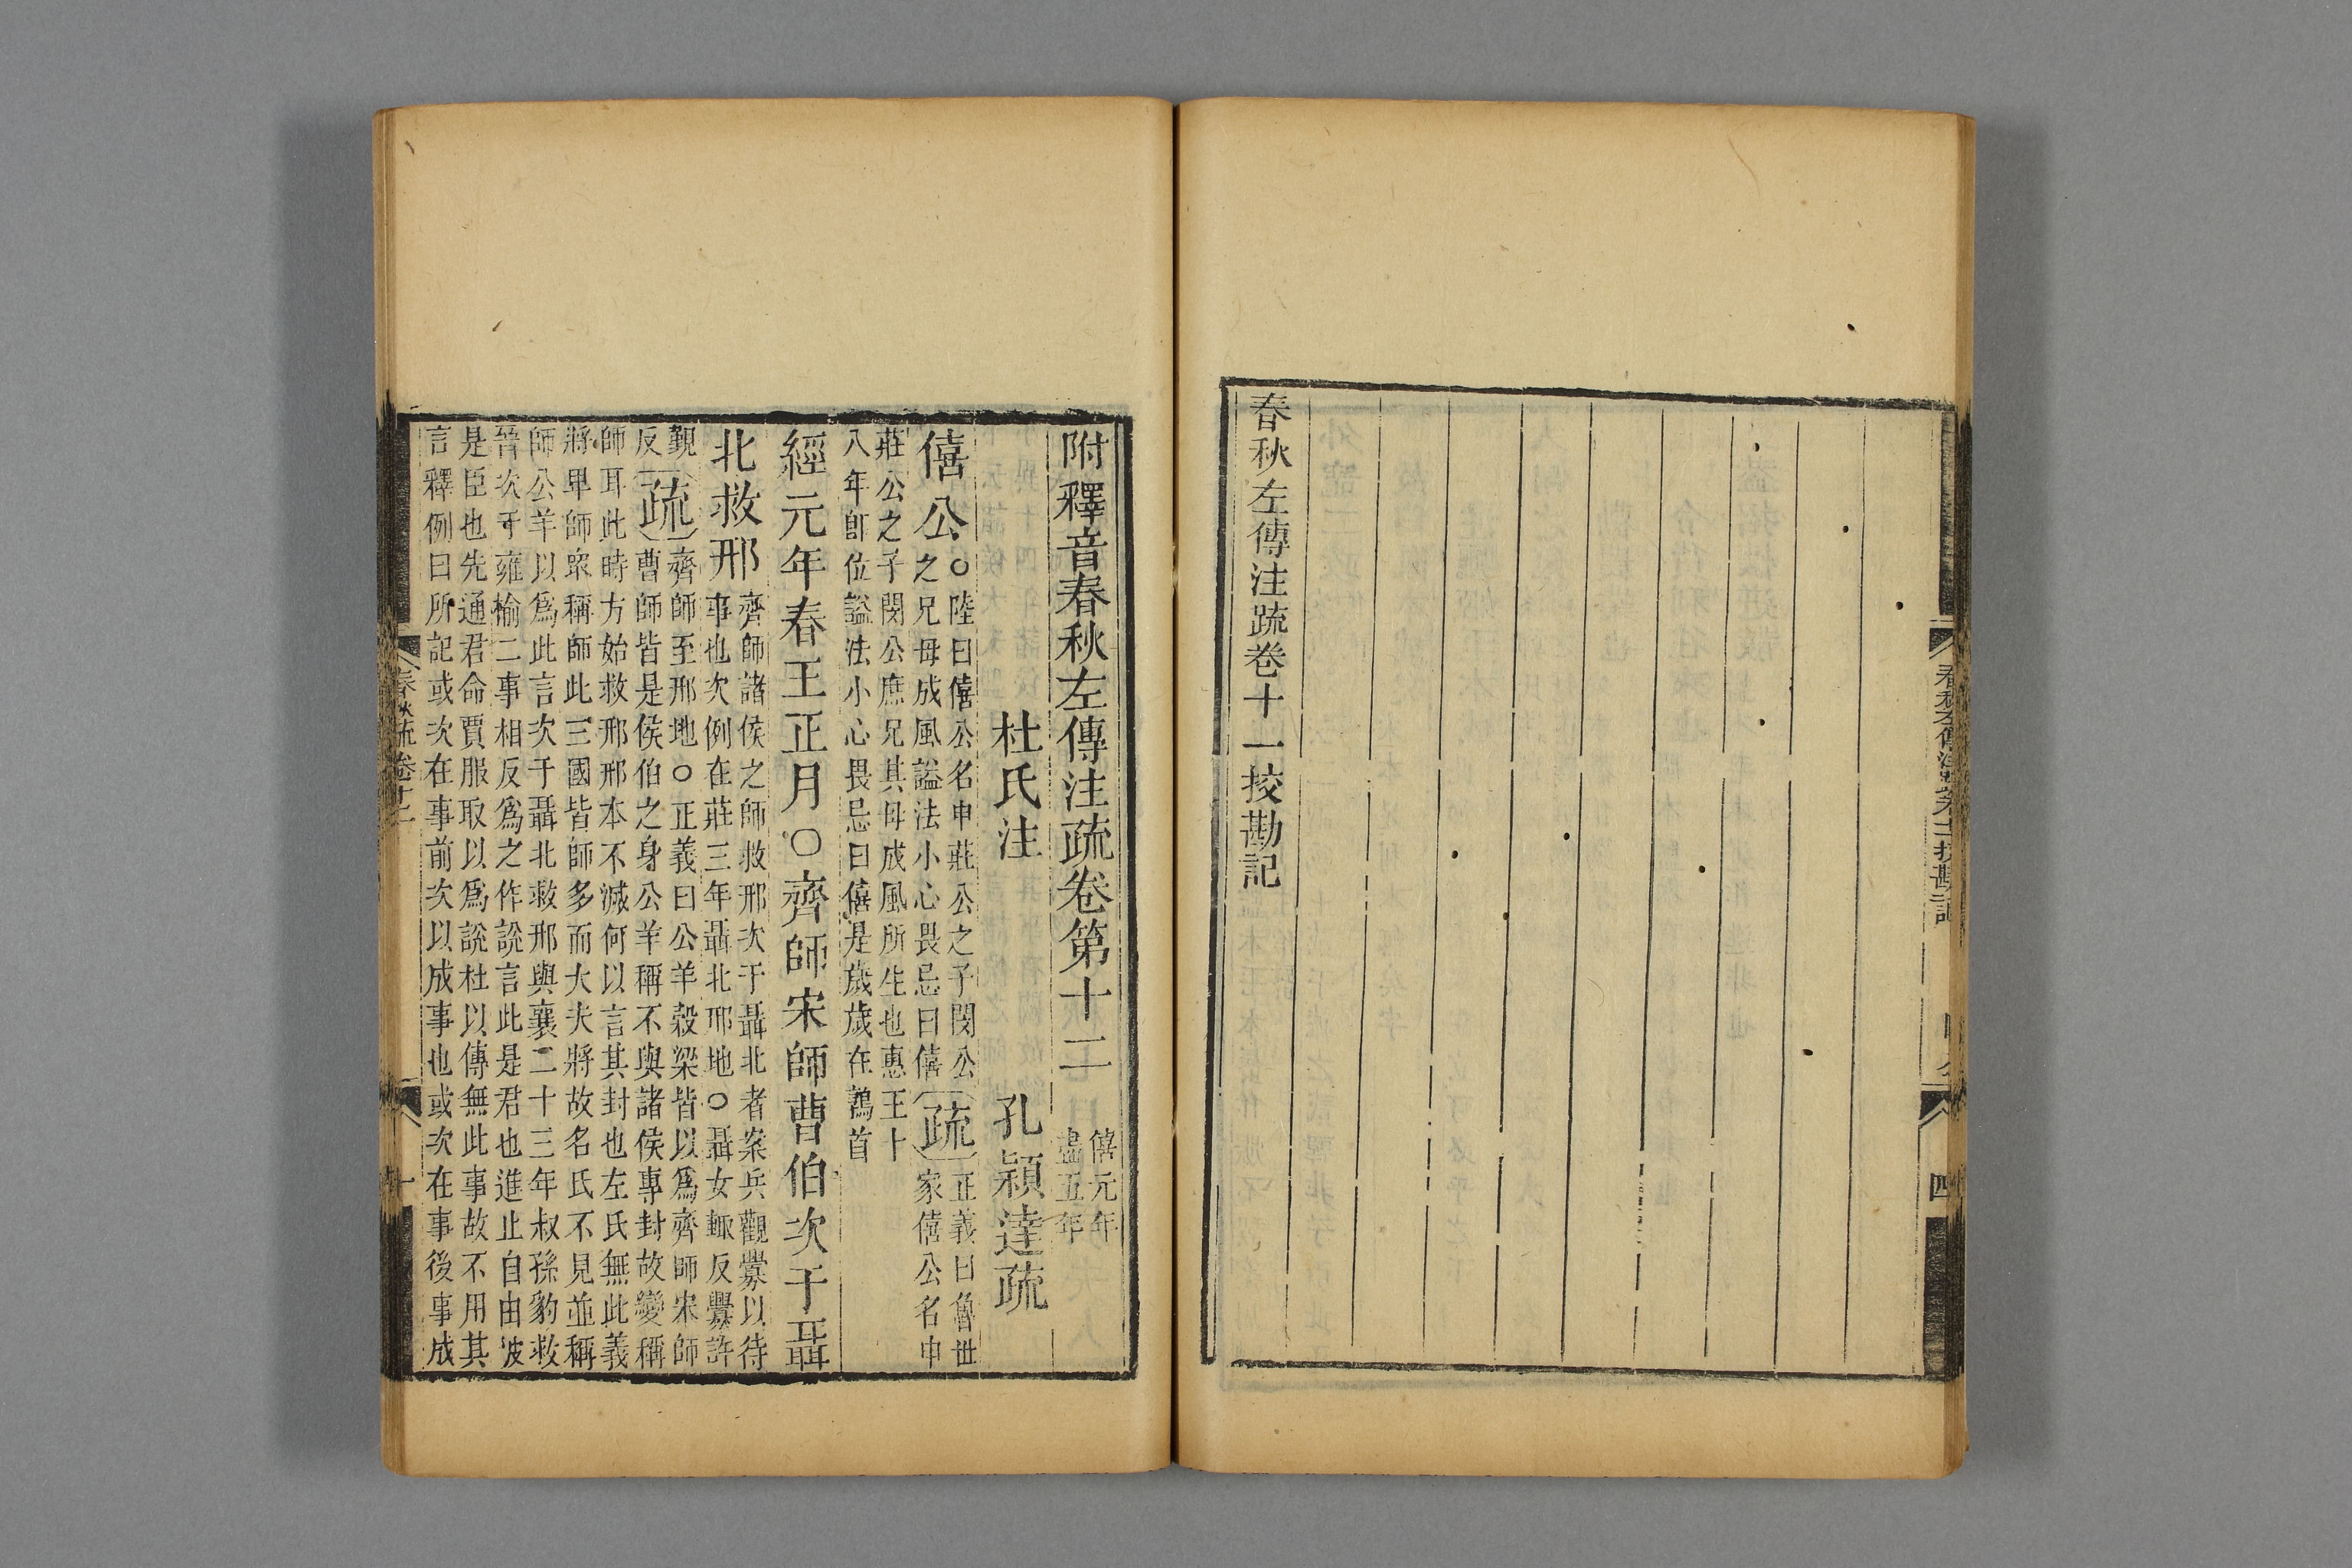 春秋左傳注疏卷十一挍勘記
附釋音春秋左傳注疏卷第十二
僖元年
盡五年
杜氏注
孔穎達疏
僖公
○陸曰僖公名申莊公之子閔公
之兄母成風謚法小心畏忌曰僖
疏
正義曰魯世
家僖公名申
莊公之子閔公庶兄其母成風所生也惠王十
八年卽位謚法小心畏忌曰僖是歲歲在鶉首
經元年春王正月○齊師宋師曹伯次于聶
北救邢
齊師諸侯之師救邢次于聶北者案兵觀釁以待
事也次例在莊三年聶北邢地○聶女輒反釁許
覲
反
疏
齊師至邢地○正義曰公羊穀梁皆以爲齊師宋師
曹師皆是侯伯之身公羊稱不與諸侯專封故變稱
師耳此時方始救邢邢本不滅何以言其封也左氏無此義
將卑師眾稱師此三國皆師多而大夫將故名氏不見並稱
師公羊以爲此言次于聶北救邢與襄二十三年叔孫豹救
晉次于雍榆二事相反爲之作說言此是君也進止自由彼
是臣也先通君命賈服取以爲說杜以傳無此事故不用其
言釋例曰所記或次在事前次以成事也或次在事後事成
春秋疏卷十二